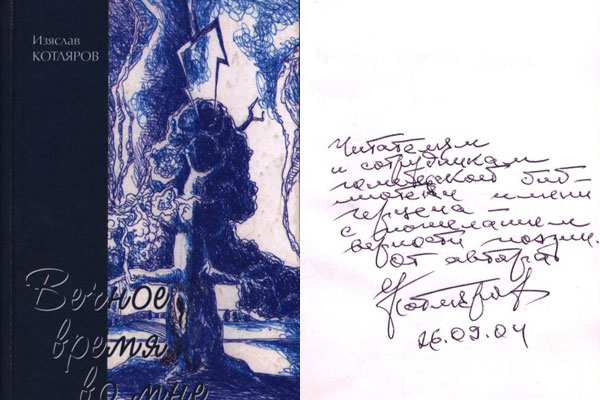 Изяслав
КОТЛЯРОВ
Вечное
время
во мне
Читателям
и сотрудникам
гомельской биб-
лиотеки имени
Герцена –
с пожеланием
верности поэзии.
От автора
Котляров
26.09.04